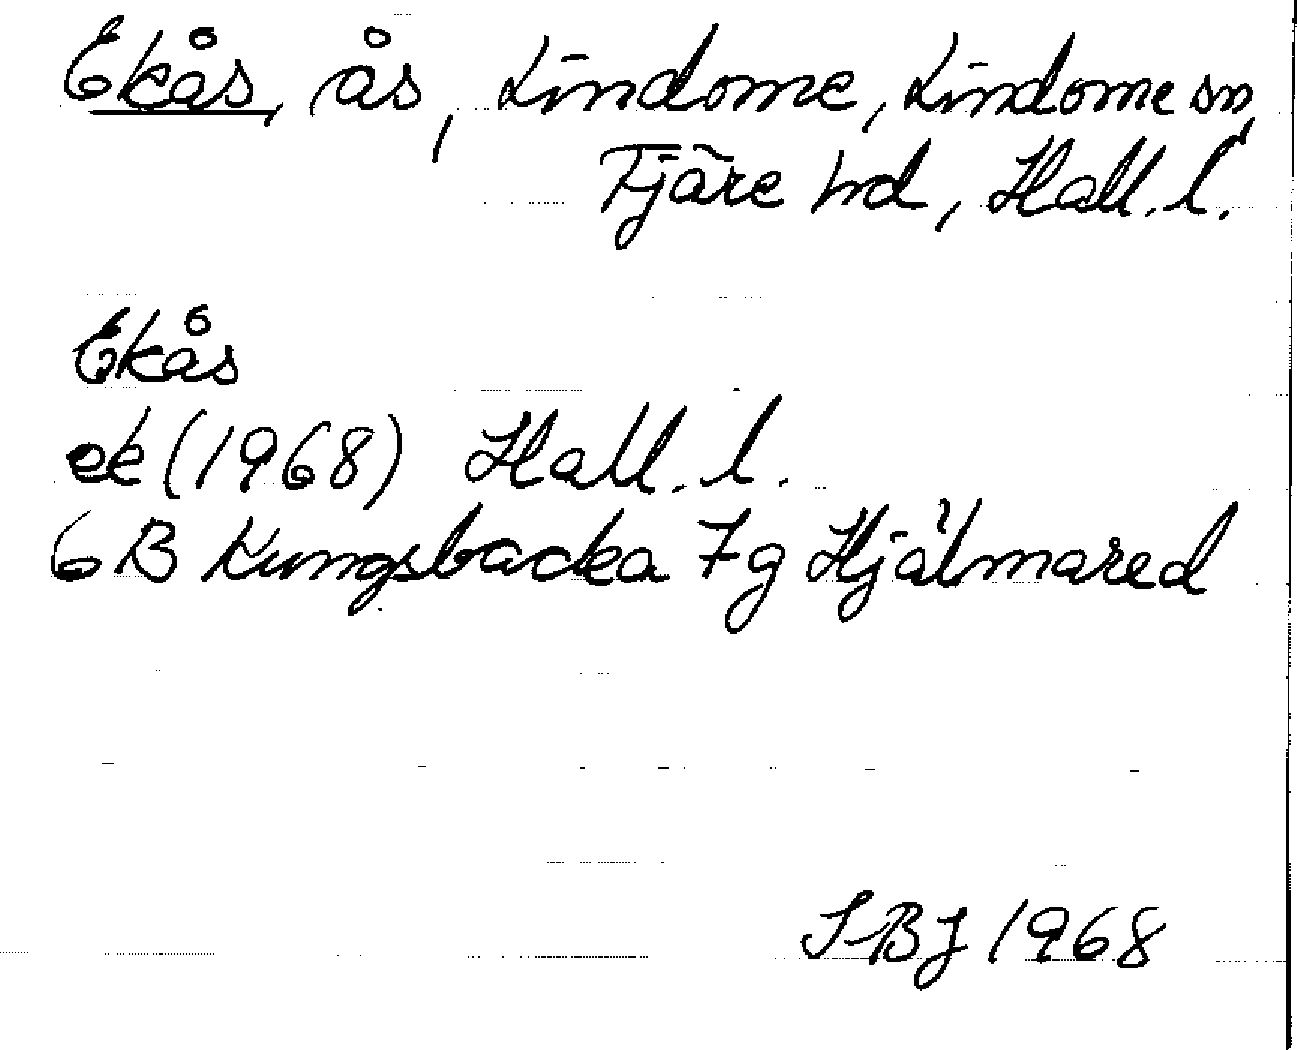 Ekås, ås, Lindome, Lindome sn,
Fjäre hd, Hall. l.
Ekås
ek (1968) Hall. l.
6B Kungsbacka 7g Hjälmared
SBJ 1968